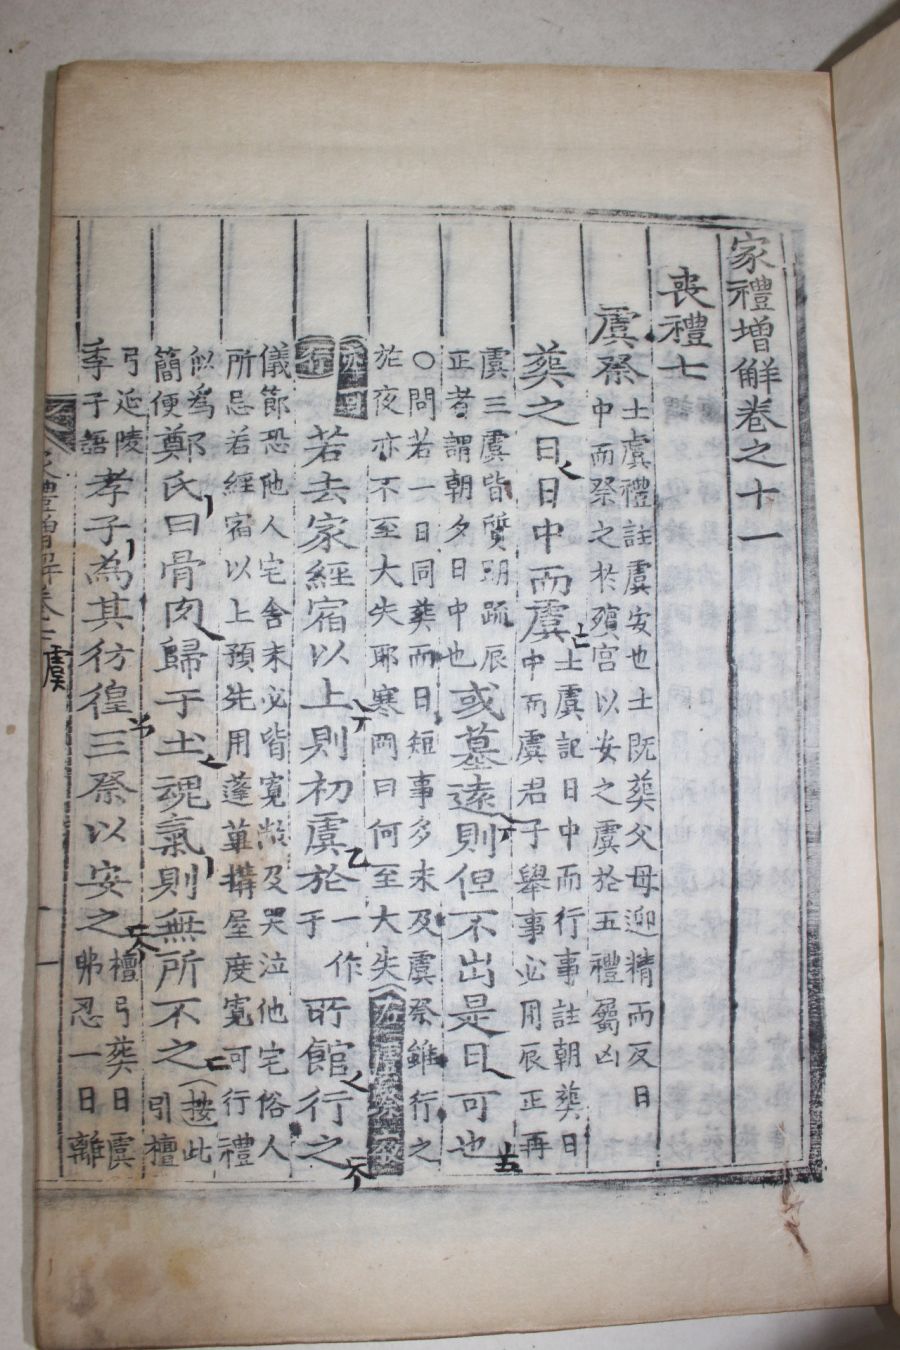 家禮增解卷之十一
喪禮七
虞祭士虞禮註虞安也士既葬父母迎精而反日
中而祭之於殯宮以安之虞於五禮屬凶
葬之日日中而虞士虞記日中而行事註朝葬日
中而虞君子舉事必用辰正再
虞三虞皆質明疏辰
正者謂朝夕日中也或墓遠則但不出是日可也
〇問若一日同葬而日短事多未及虞祭雖行之
於夜亦不至大失耶寒岡曰何至大失右虞祭及
日
行若去家經宿以上則初虞於一作于所館行之
儀節恐他人宅舍未必皆寬敞及哭泣他宅俗人
所忌若經宿以上預先用搆屋度寬可行禮
似為
簡便鄭氏曰骨肉歸于土魂氣則無所不之按此
引檀
弓延陵
季子語孝子為其彷徨三祭以安之檀弓葬日虞
弗忍一日離
家禮增解卷十一 虞